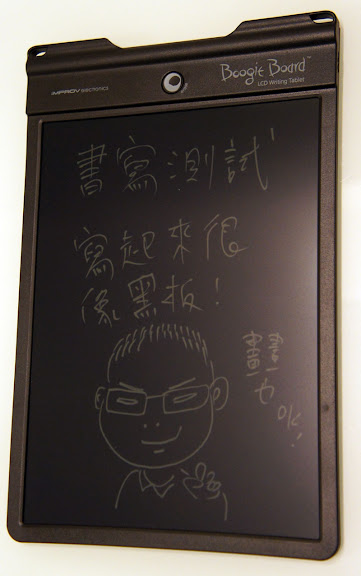 IMPROV ELECTRONICS
Boogie Board™
LCD Writing Tablet
書寫測試
寫起來很
像黑板!
畫畫也ok!